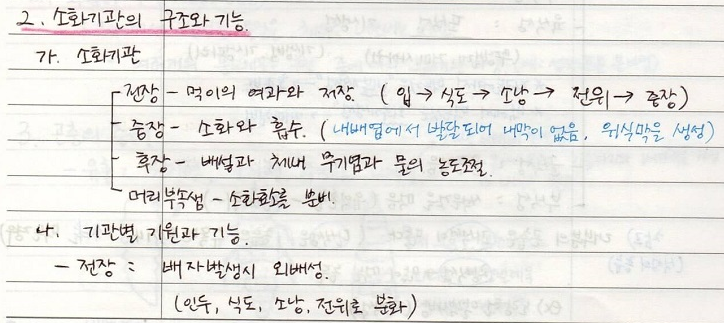 2. 소화기관의 구조와 기능.
가. 소화기관
전장 - 먹이의 여과와 저장. (입 → 식도 → 소낭 → 전위 → 중장)
중장 - 소화와 흡수. (내배엽에서 발달되어 내막이 없음, 위식막을 생성)
후장 - 배설과 체내 무기염과 물의 농도조절.
머리부속샘 - 소화효소를 분비.
나. 기관별 기원과 기능.
- 전장 : 배자발생시 외배성.
(인두, 식도, 소낭, 전위로 분화)